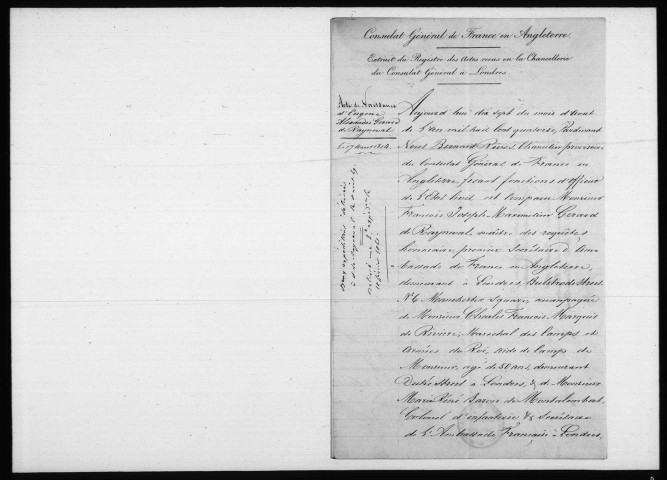 Consulat Général de France en Angleterre.
Extrait du Registre des Actes reçus en la Chancellerie
du Consulat Général à Londres.
Acte de Naissance
d'Eugène
Alexandre Gérard
de Rayneval
Le 17 Aout 1814
Aujourd'hui dix sept du mois d'Aout
de l'An mil huit cent quatorze, Pardevant
Nous Bernard Rives Chancelier provisoire
du Consulat Général de France en
Angleterre fesant fonctions d'officier
de l'Etat Civil est comparu Monsieur
François Joseph Maximilien Gerard
de Rayneval, maître des requêtes
honoraire, premier Secrétaire d'Am-
bassade de France en Angleterre,
demeurant à Londres, Bulstrode Street
No 6 Manchester Square, accompagné
de Monsieur Charles François Marquis
de Rivière, Marechal des Camps et
Armées du Roi, aide de Camps de
Monsieur, agé de 50 ans, demeurant
Duke Street à Londres, & de Monsieur
Marie Réné Baron de Montalembert
Colonel d'infanterie & Secrétaire
de l'Ambassade Française à Londres,